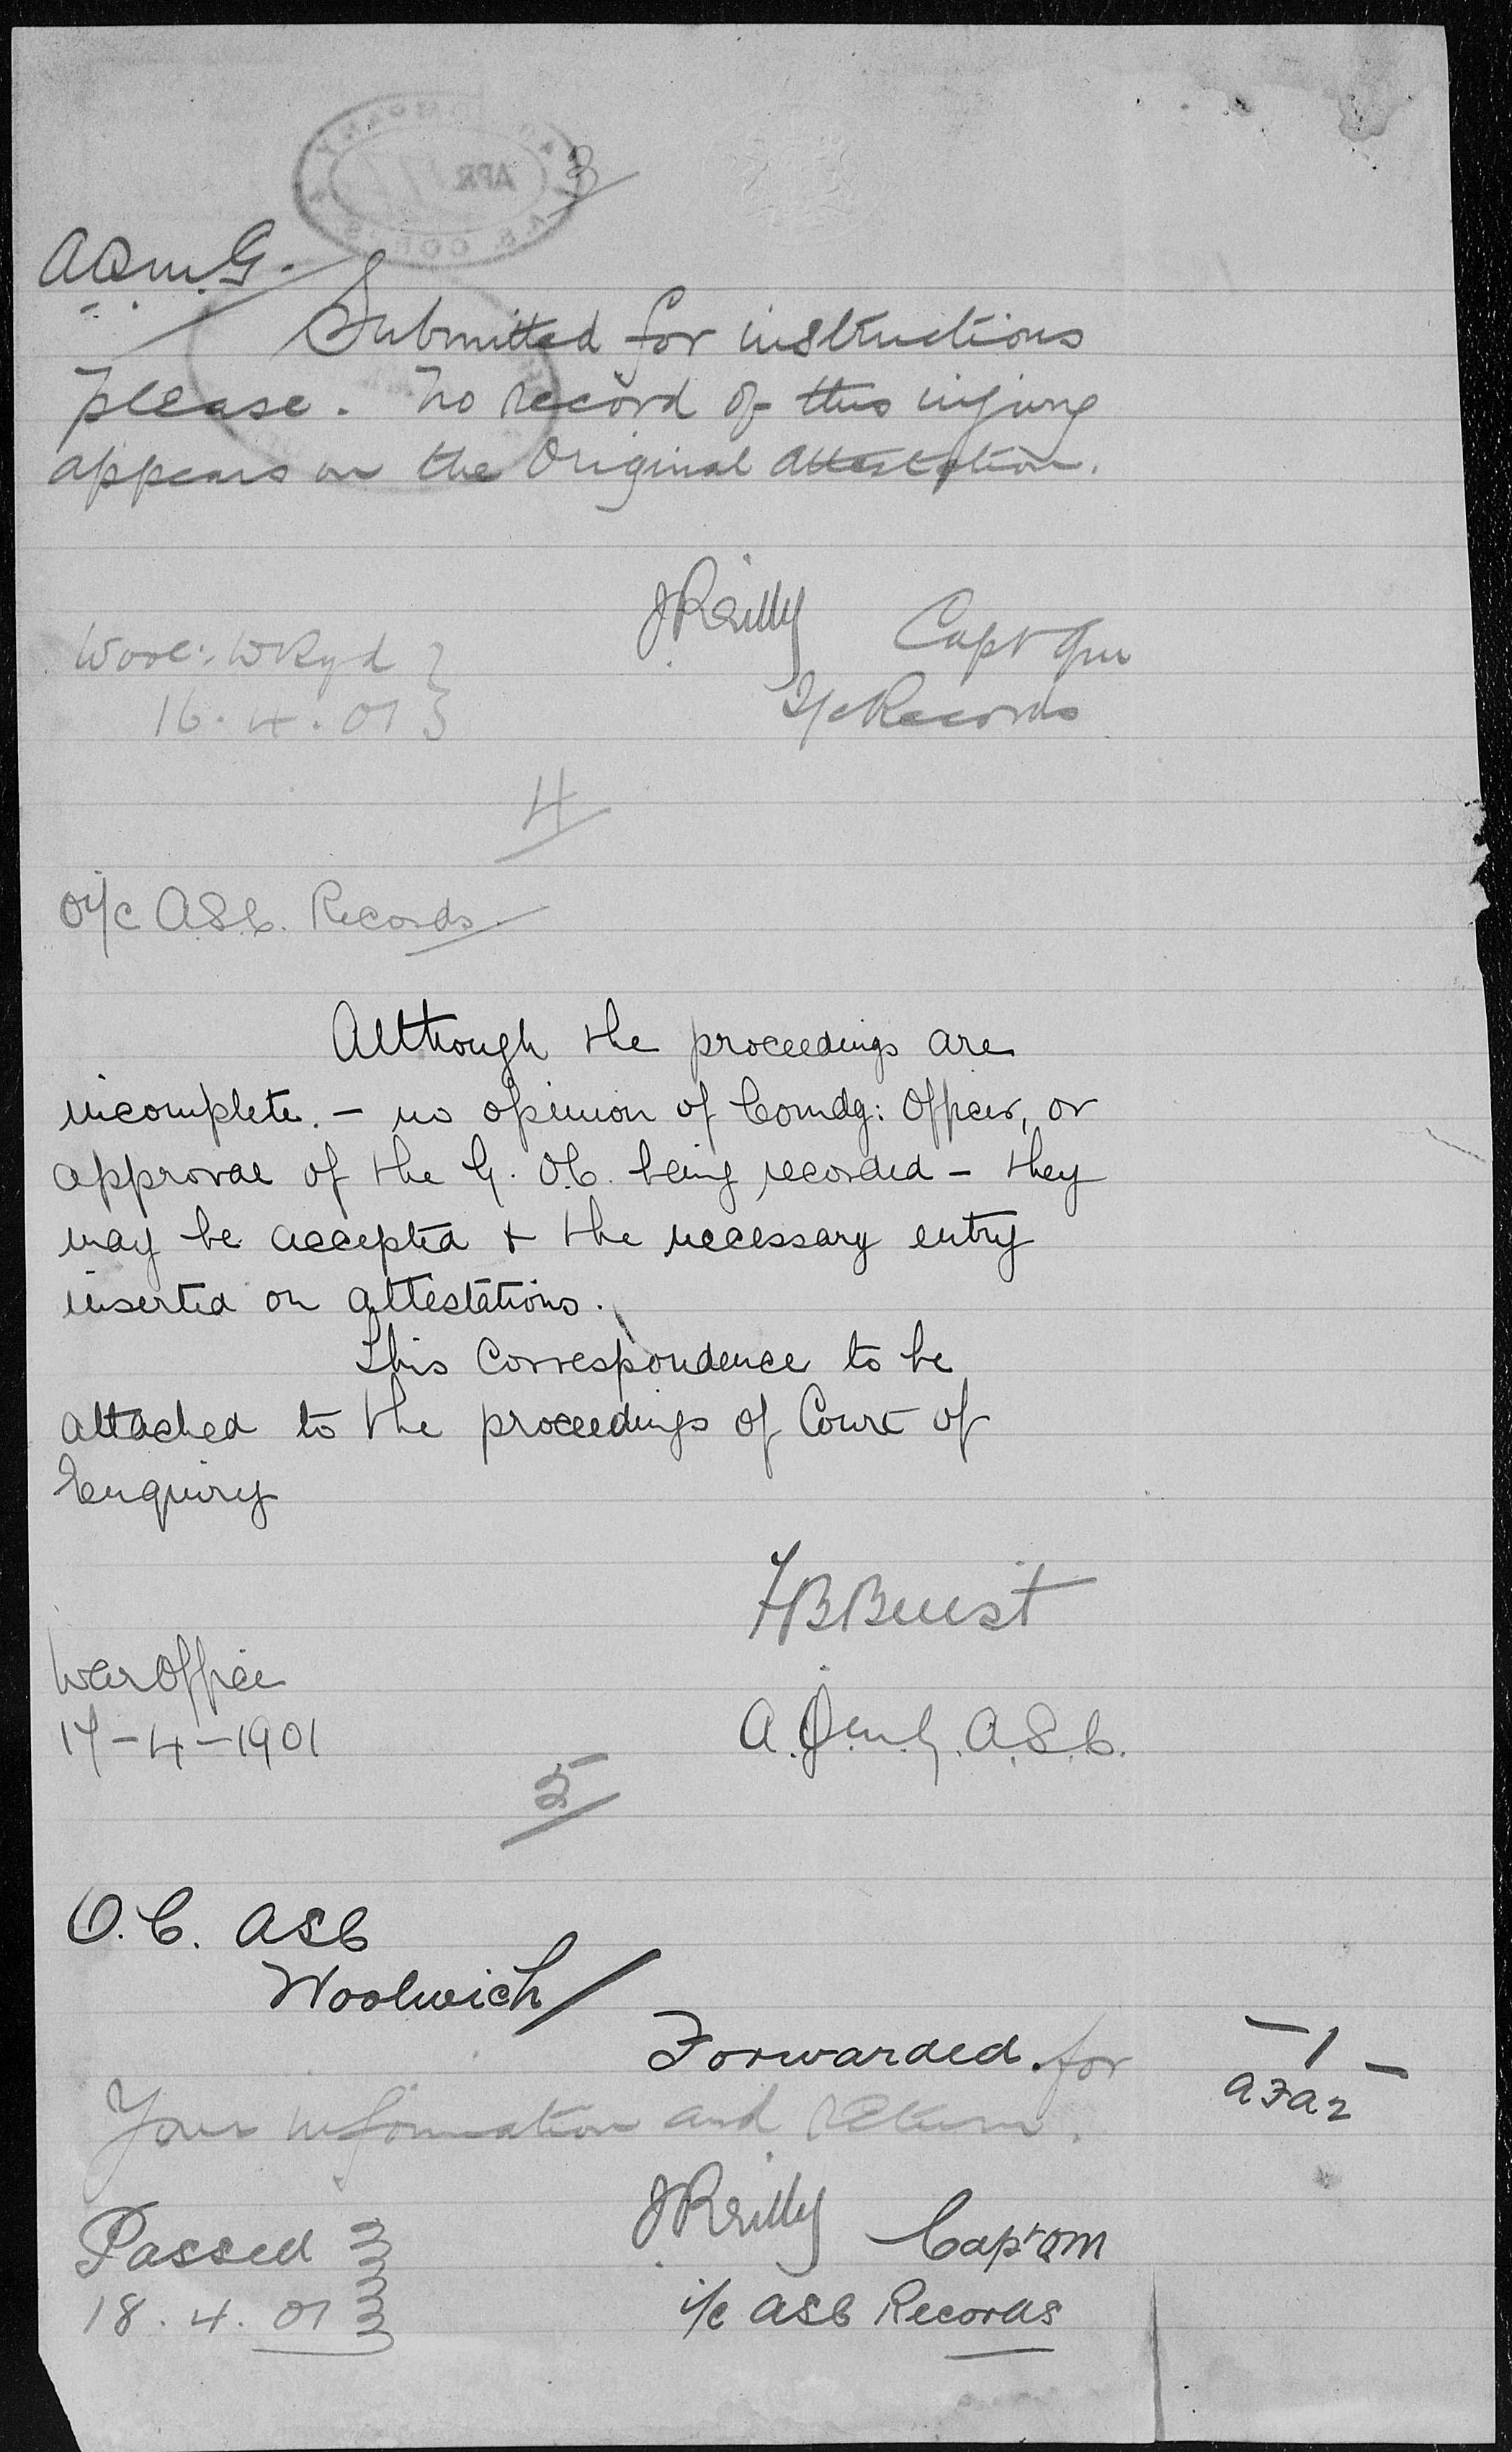 3
A.Q.M.G.
Submitted for instructions
please. No record of this injury
appears on the Original Attestation.
JReilly Capt Qm
I/c Records
Wool: Dkyd
16.4.01
4
O i/c A.S.C. Records
Although the proceedings are
incomplete. - no opinion of Comdg: Officer, or
approval of the G.O.C. being recorded - they
may be accepted + the necessary entry
inserted on attestations.
This correspondence to be
attached to the proceedings of Court of
Enquiry
HBBuist
War Office
17-4-1901
A.G. A.S.C.
5
O.C. ASC
Woolwich
Forwarded. for
Your information and return.
1
AFA2
Passed
18.4.01
JReilly Capt QM
i/c ASC Records